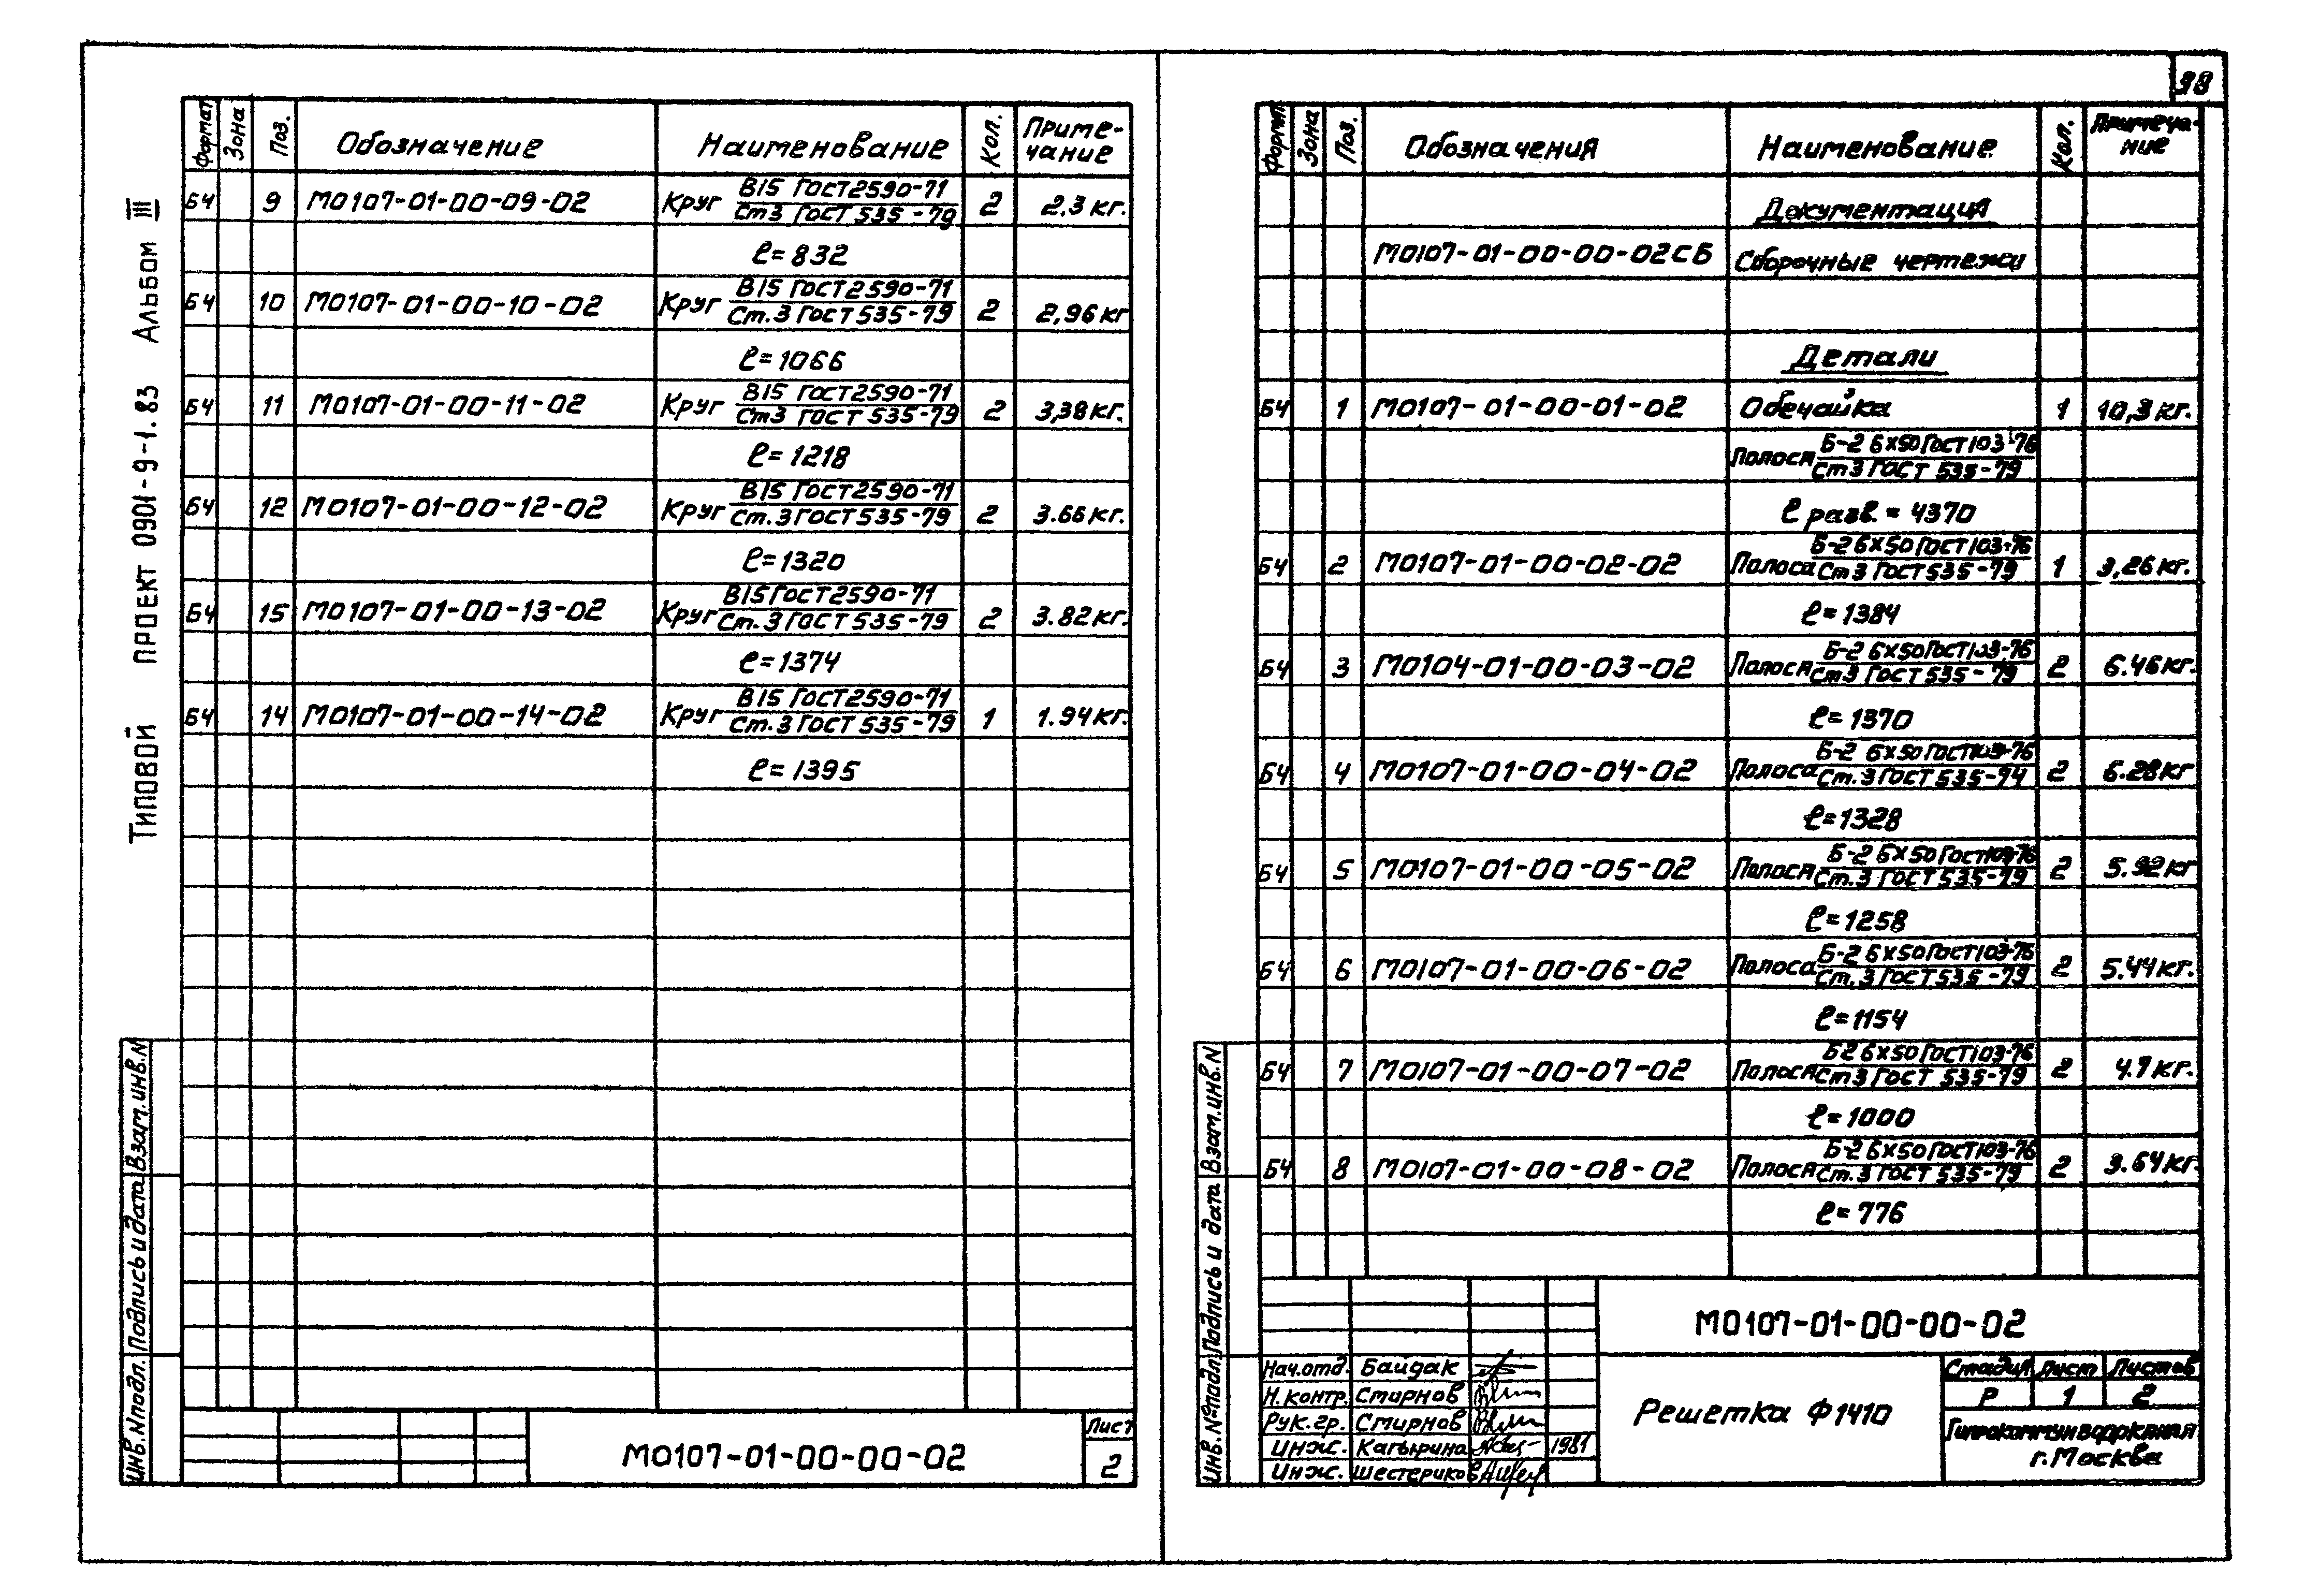 98
Типовой проект 0901-9-1.83 Альбом III
Формат Зона Поз. Обозначение Наименование Кол. Приме-
чание
Б4 9 М0107-01-00-09-02 Круг В15 ГОСТ2590-71 2 2,3 кг.
Ст3 ГОСТ 535-79
ℓ=832
Б4 10 М0107-01-00-10-02 Круг В15 ГОСТ2590-71 2 2,96кг
Ст.3 ГОСТ 535-79
ℓ=1066
Б4 11 М0107-01-00-11-02 Круг В15 ГОСТ2590-71 2 3,38кг.
Ст3 ГОСТ 535-79
ℓ=1218
Б4 12 М0107-01-00-12-02 Круг В15 ГОСТ2590-71 2 3.66кг.
Ст.3 ГОСТ 535-79
ℓ=1320
Б4 15 М0107-01-00-13-02 Круг В15 ГОСТ2590-71 2 3.82кг.
Ст.3 ГОСТ 535-79
ℓ=1374
Б4 14 М0107-01-00-14-02 Круг В15 ГОСТ2590-71 1 1.94кг.
Ст.3 ГОСТ 535-79
ℓ=1395
Инв.Nподл. Подпись и дата Взам.инв.N
М0107-01-00-00-02
Лист
2
Формат Зона Поз. Обозначения Наименование Кол. Примеча-
ние
Документация
М0107-01-00-00-02СБ Сборочные чертежи
Детали
Б4 1 М0107-01-00-01-02 Обечайка 1 10,3 кг.
Полоса Б-2 6х50 ГОСТ103-76
Ст3 ГОСТ 535-79
ℓ разв. = 4370
Б4 2 М0107-01-00-02-02 Полоса Б-2 6х50 ГОСТ103-76 1 3,26кг.
Ст3 ГОСТ535-79
ℓ=1384
Б4 3 М0104-01-00-03-02 Полоса Б-2 6х50 ГОСТ103-76 2 6.46кг.
Ст3 ГОСТ 535-79
ℓ=1370
Б4 4 М0107-01-00-04-02 Полоса Б-2 6х50 ГОСТ103-76 2 6.28кг
Ст.3 ГОСТ 535-74
ℓ=1328
Б4 5 М0107-01-00-05-02 Полоса Б-2 6х50 ГОСТ103-76 2 5.92кг
Ст.3 ГОСТ 535-79
ℓ=1258
Б4 6 М0107-01-00-06-02 Полоса Б-2 6х50 ГОСТ103-76 2 5.44кг.
Ст.3 ГОСТ 535-79
ℓ=1154
Б4 7 М0107-01-00-07-02 Полоса Б2 6х50 ГОСТ103-76 2 4.7кг.
Ст3 ГОСТ 535-79
ℓ=1000
Б4 8 М0107-01-00-08-02 Полоса Б-2 6х50 ГОСТ103-76 2 3.64кг.
Ст.3 ГОСТ 535-79
ℓ=776
Инв.№подл. Подпись и дата Взам.инв.N
М0107-01-00-00-02
Нач.отд. Байдак
Н.контр. Смирнов
Рук.гр. Смирнов
Инж. Кагырина 1981
Инж. Шестериков
Решетка Ф1410
Стадия Лист Листов
Р 1 2
Гипрокоммунводоканал
г.Москва